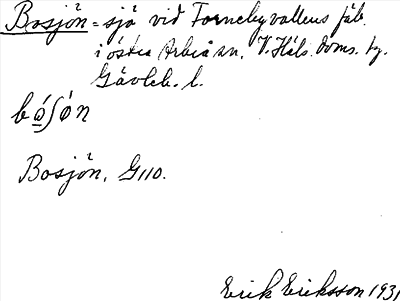 Bosjön = sjö vid Fornebyvallens fäb.
i östra Arbrå sn. V. Häls. doms. tg.
Gävleb. l.
bo̱ʃo̱n
Bosjön. G110.
Erik Eriksson 1931